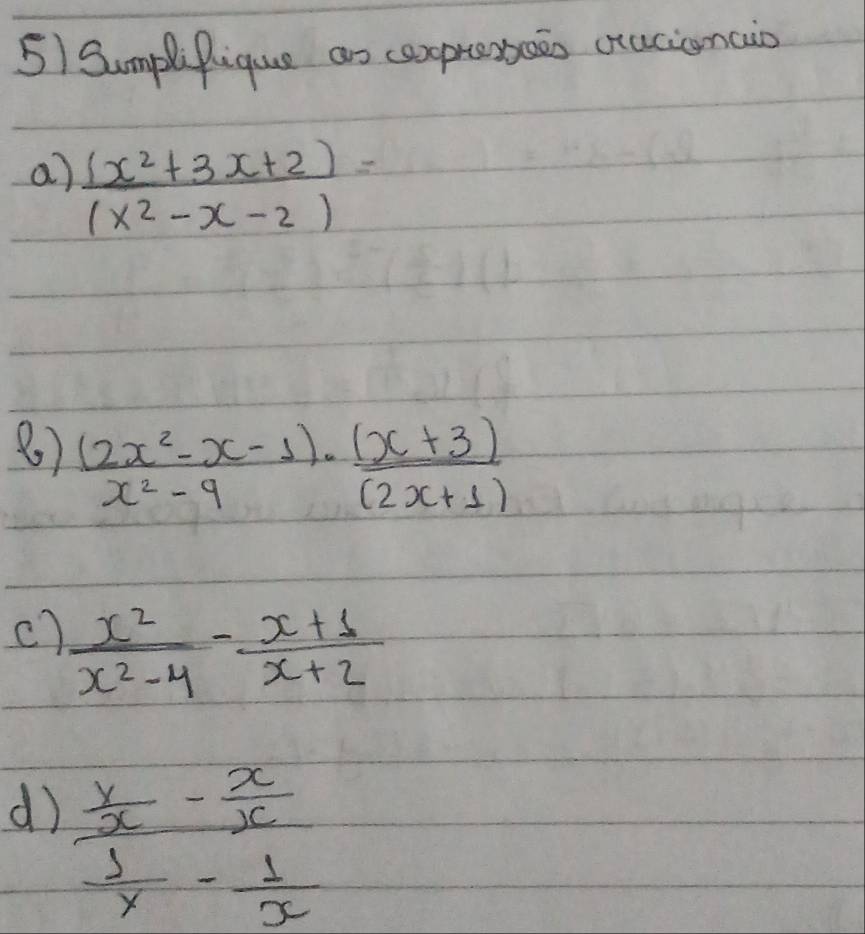 5) Simplifique as expressões racionais
a) (x² + 3x + 2) =
(x² - x - 2)
b) (2x² - x - 1) . (x + 3)
x² - 9 (2x + 1)
c) x² - x + 1
x² - 4 x + 2
d) y/x - x/x
1/y - 1/x